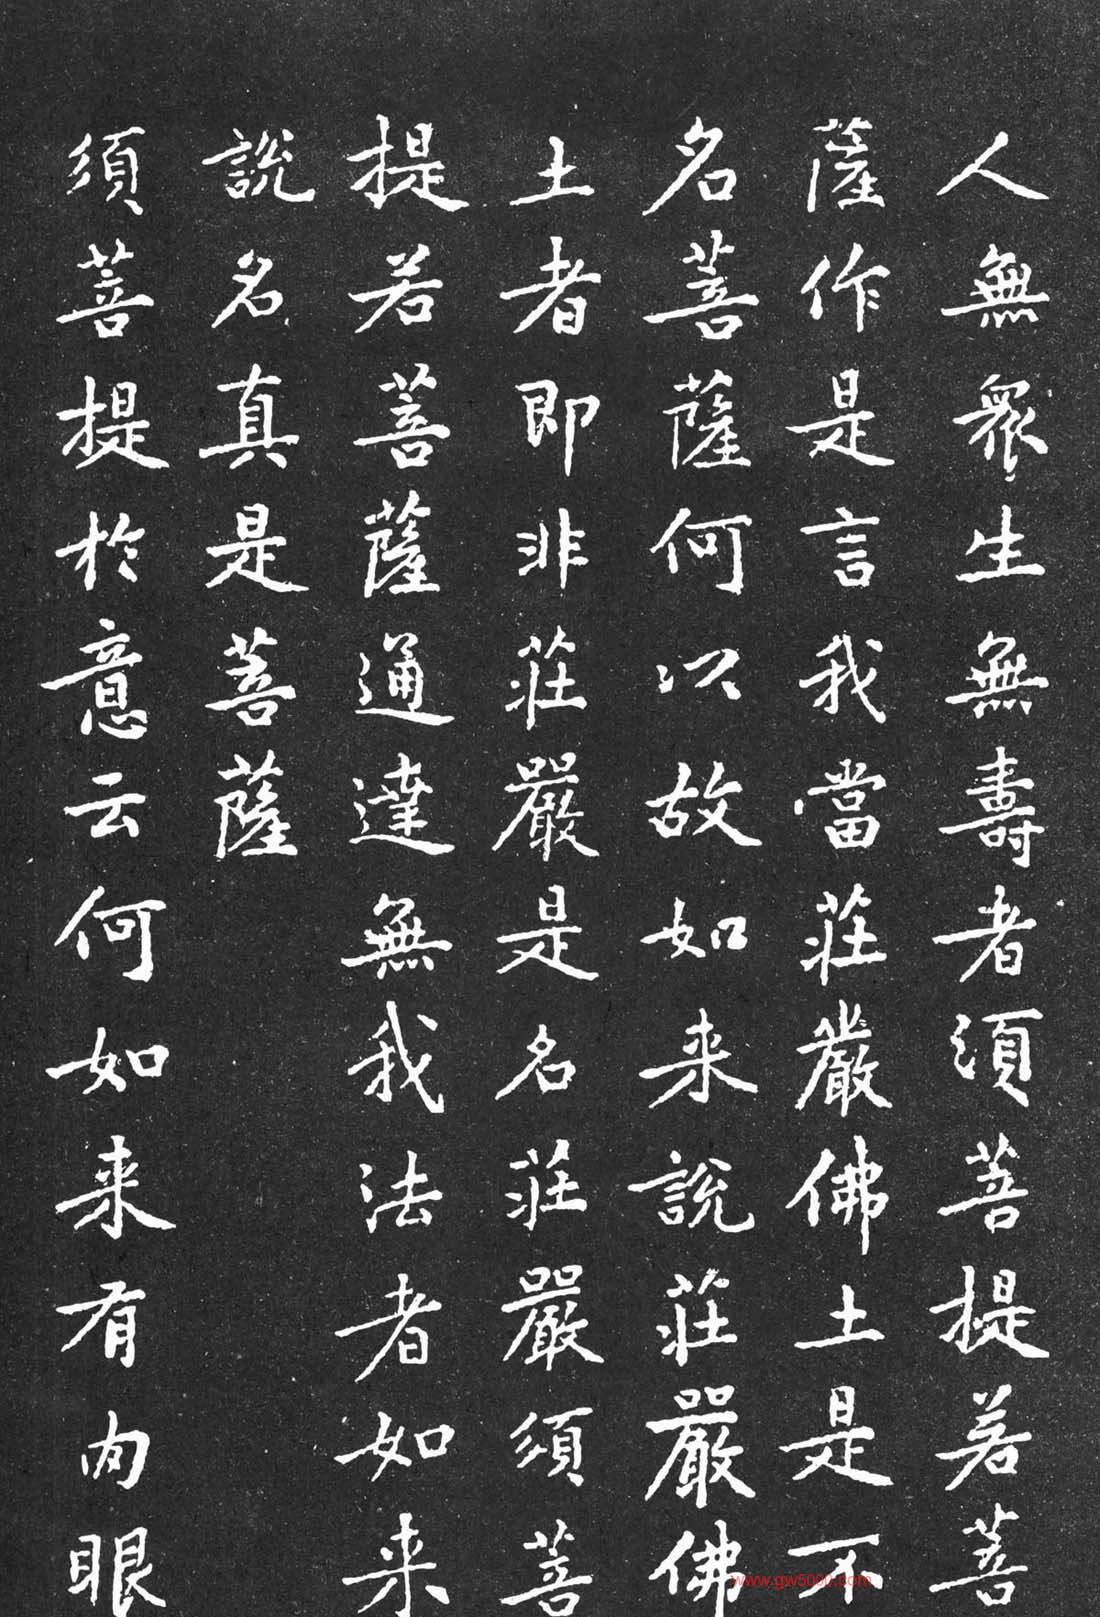 人無衆生無壽者須菩提若菩
薩作是言我當莊嚴佛土是不
名菩薩何以故如来說莊嚴佛
土者即非莊嚴是名莊嚴須菩
提若菩薩通達無我法者如来
說名真是菩薩
須菩提於意云何如来有肉眼
www.gw5000.com